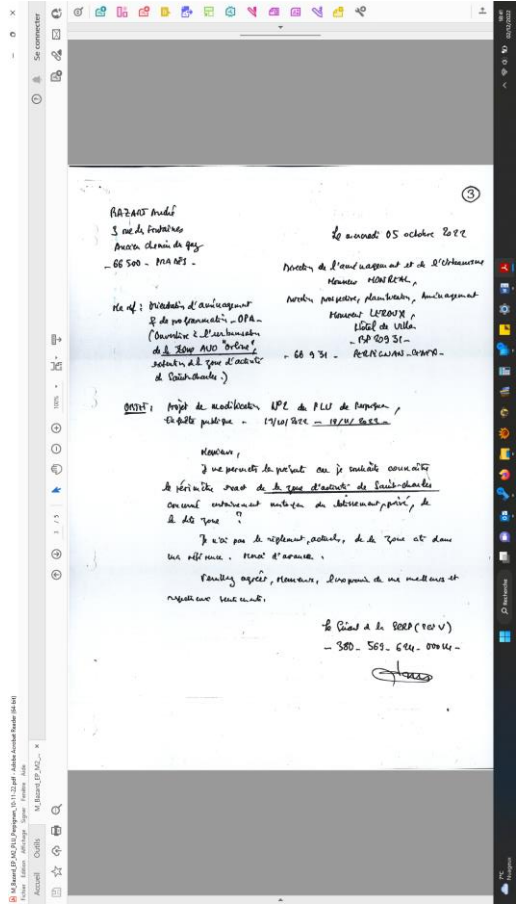 M_Bazard_EP_M2_PLU_Perpignan_10-11-22.pdf - Adobe Acrobat Reader (64-bit)
Fichier Edition Affichage Signer Fenêtre Aide
Accueil Outils M_Bazard_EP_M2_... ×
Se connecter
3 / 5
100%
③
BAZART André
3 rue des Fontaines
Ancien chemin de
- 66 500 - PRADES -
Le mercredi 05 octobre 2022
Direction de l'aménagement et de l'Urbanisme
Monsieur MONREAL,
Direction prospective, planification, Aménagement
Monsieur LEROUX,
Hôtel de Ville
- BP 20931 -
- 66 931 - PERPIGNAN - CEDEX -
: Orientation d'aménagement
& de programmation - OPA -
(Ouverture à l'urbanisation
de la zone AU0 "Orline",
extention de la zone d'activité
de Saint-charles.)
OBJET : Projet de modification N°2 du PLU de Perpignan,
Enquête publique - 17/10/2022 - 18/11/2022 -
Messieurs,
Je me permets la présente car je souhaite connaître
le périmètre exact de la zone d'activité de Saint-charles
concerné du lotissement, privé, de
la dite zone ?
Je n'ai pas le règlement, actuel, de la zone cité dans
ma référence. Merci d'avance.
Veuillez agréer, Messieurs, l'expression de mes meilleurs et
respectueux sentiments.
Le Gérant de la
- 380 - 569 - 624 -
Recherche
7°C
Nuageux
18:41
02/12/2022